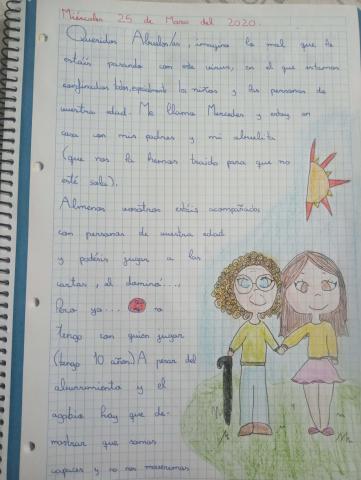 Miércoles 25 de Marzo del 2020.
Queridos Abuelos/as, imagino lo mal que lo
estáis pasando con este virus, en el que estamos
confinados todos, especialmente los niños y las personas de
vuestra edad. Me llamo Mercedes y estoy en
casa con mis padres y mi abuelita
(que nos la hemos traido para que no
esté sola).
Almenos vosotros estáis acompañados
con personas de vuestra edad
y podéis jugar a las
cartas, al dominó...,
pero yo... no
tengo con quién jugar
(tengo 10 años) A pesar del
aburrimiento y el
agobio hay que de-
mostrar que somos
capaces y no nos